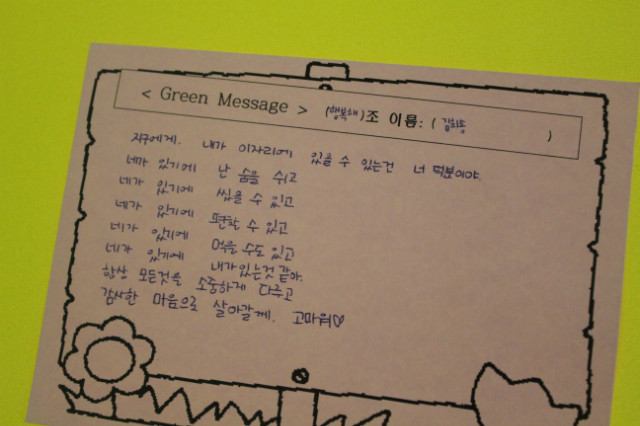 < Green Message > (행복해)조 이름: (김희동 )
지구에게. 내가 이자리에 있을 수 있는건 너 덕분이야.
네가 있기에 난 숨을 쉬고
네가 있기에 씻을 수 있고
네가 있기에 편할 수 있고
네가 있기에 먹을 수도 있고
네가 있기에 내가 있는것 같아.
항상 모든것을 소중하게 다루고
감사한 마음으로 살아갈께. 고마워♡